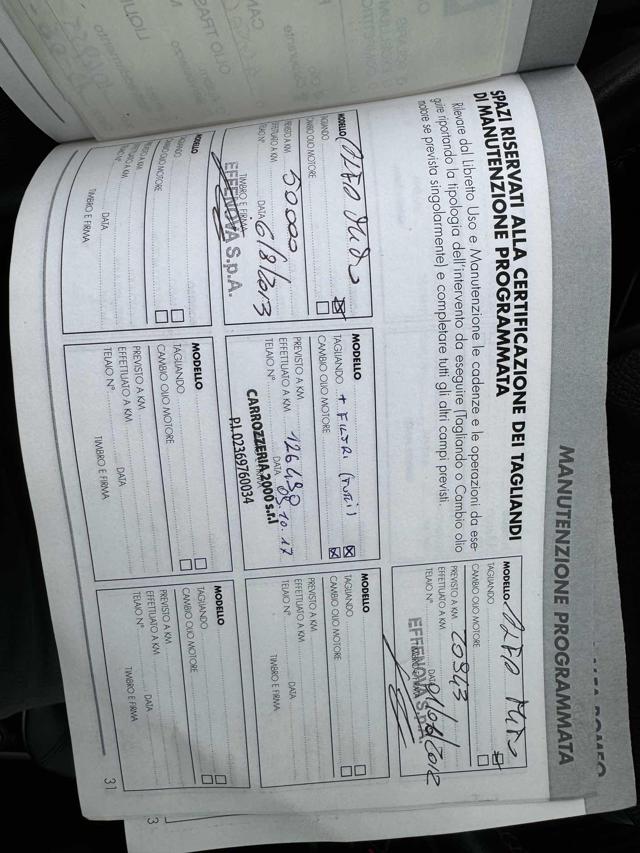 MANUTENZIONE PROGRAMMATA
SPAZI RISERVATI ALLA CERTIFICAZIONE DEI TAGLIANDI
DI MANUTENZIONE PROGRAMMATA
Rilevare dal Libretto Uso e Manutenzione le cadenze e le operazioni da ese-
guire riportando la tipologia dell'intervento da eseguire (Tagliando o Cambio olio
motore se prevista singolarmente) e completare tutti gli altri campi previsti.
MODELLO ALFA MITO
TAGLIANDO
CAMBIO OLIO MOTORE
PREVISTO A KM 20943
EFFETTUATO A KM
TELAIO N°
DATA
EFFENOVA S.p.A.
MODELLO ALFA MITO
TAGLIANDO
CAMBIO OLIO MOTORE
PREVISTO A KM 50000
EFFETTUATO A KM
TELAIO N°
DATA 6/8/2013
TIMBRO E FIRMA
EFFENOVA S.p.A.
MODELLO
TAGLIANDO + FILTRI
CAMBIO OLIO MOTORE
PREVISTO A KM
EFFETTUATO A KM 126480
TELAIO N°
DATA 05.10.17
CARROZZERIA 2000 s.r.l
P.I. 02369760034
MODELLO
TAGLIANDO
CAMBIO OLIO MOTORE
PREVISTO A KM
EFFETTUATO A KM
TELAIO N°
DATA
TIMBRO E FIRMA
MODELLO
TAGLIANDO
CAMBIO OLIO MOTORE
PREVISTO A KM
EFFETTUATO A KM
TELAIO N°
DATA
TIMBRO E FIRMA
MODELLO
TAGLIANDO
CAMBIO OLIO MOTORE
PREVISTO A KM
EFFETTUATO A KM
TELAIO N°
DATA
TIMBRO E FIRMA
MODELLO
TAGLIANDO
CAMBIO OLIO MOTORE
PREVISTO A KM
EFFETTUATO A KM
TELAIO N°
DATA
TIMBRO E FIRMA
31